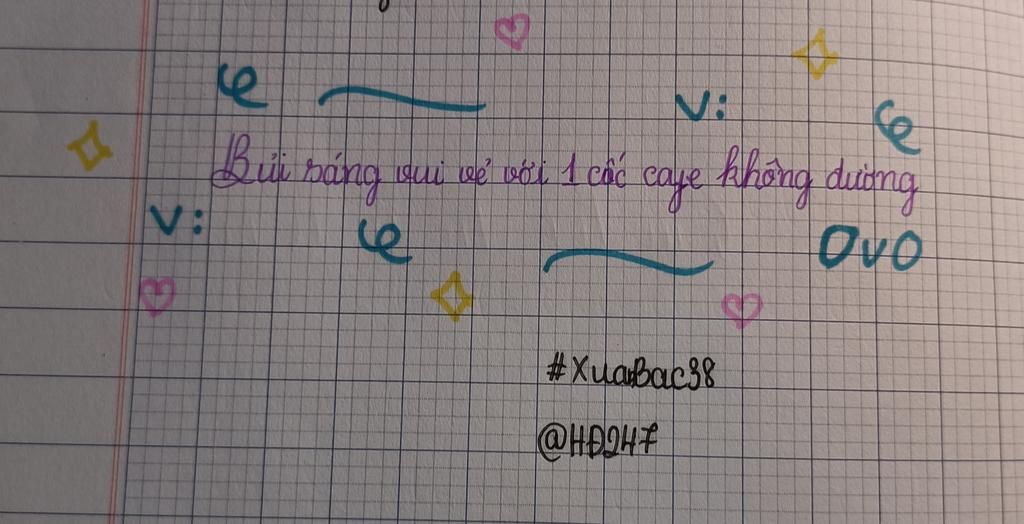 V:
Bủi sáng vui vẻ với 1 cốc cafe không đường
V:
OvO
#XuaBac98
@HĐ247